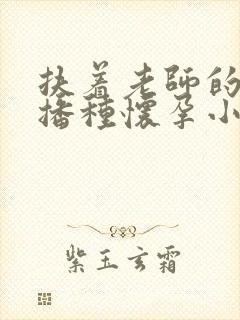 扶着老師的
播種懷孕小
紫玉玄霜